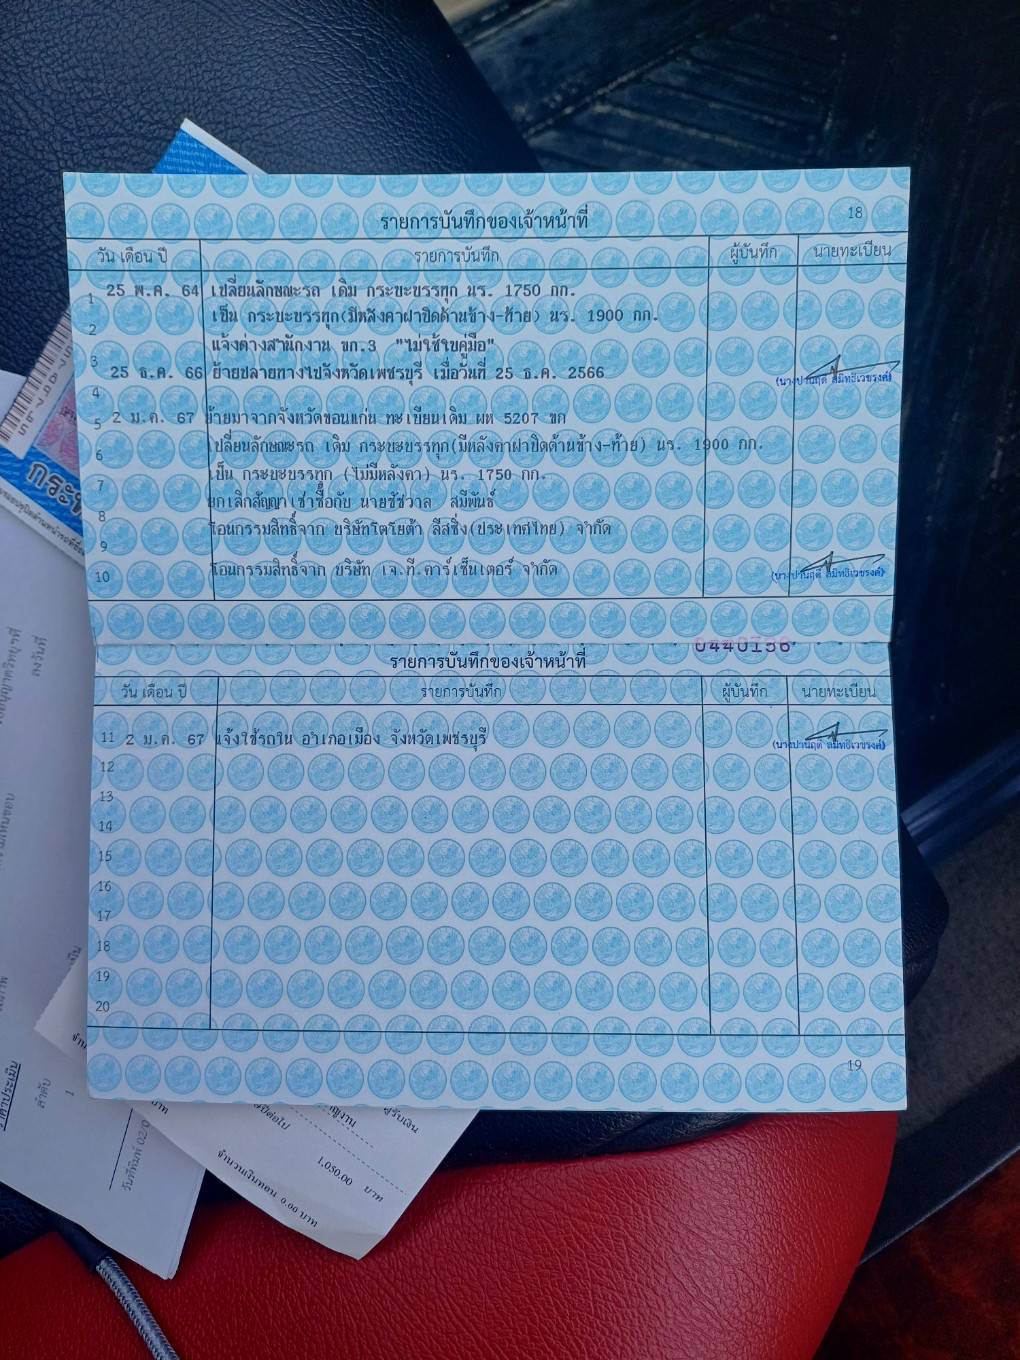 18
รายการบันทึกของเจ้าหน้าที่
วัน เดือน ปี รายการบันทึก ผู้บันทึก นายทะเบียน
1 25 พ.ค. 64 เปลี่ยนลักษณะรถ เดิม กระบะบรรทุก นร. 1750 กก.
2 เป็น กระบะบรรทุก(มีหลังคาฝาปิดด้านข้าง-ท้าย) นร. 1900 กก.
แจ้งต่างสำนักงาน ขก.3 "ไม่ใช้ใบคู่มือ"
3 25 ธ.ค. 66 ย้ายปลายทางไปจังหวัดเพชรบุรี เมื่อวันที่ 25 ธ.ค. 2566
4
5 2 ม.ค. 67 ย้ายมาจากจังหวัดขอนแก่น ทะเบียนเดิม ผห 5207 ขก
6 เปลี่ยนลักษณะรถ เดิม กระบะบรรทุก(มีหลังคาฝาปิดด้านข้าง-ท้าย) นร. 1900 กก.
7 เป็น กระบะบรรทุก (ไม่มีหลังคา) นร. 1750 กก.
ยกเลิกสัญญาเช่าซื้อกับ นายชัชวาล สมีพันธ์
8 โอนกรรมสิทธิ์จาก บริษัทโตโยต้า ลีสซิ่ง(ประเทศไทย) จำกัด
9
10 โอนกรรมสิทธิ์จาก บริษัท เจ.ที.คาร์เซ็นเตอร์ จำกัด
รายการบันทึกของเจ้าหน้าที่
วัน เดือน ปี รายการบันทึก ผู้บันทึก นายทะเบียน
11 2 ม.ค. 67 แจ้งใช้รถใน อำเภอเมือง จังหวัดเพชรบุรี
12
13
14
15
16
17
18
19
20
19
ลงวันที่
ลำดับ
1
ผู้รับเงิน
1,050.00 บาท
จำนวนเงินทอน 0.00 บาท